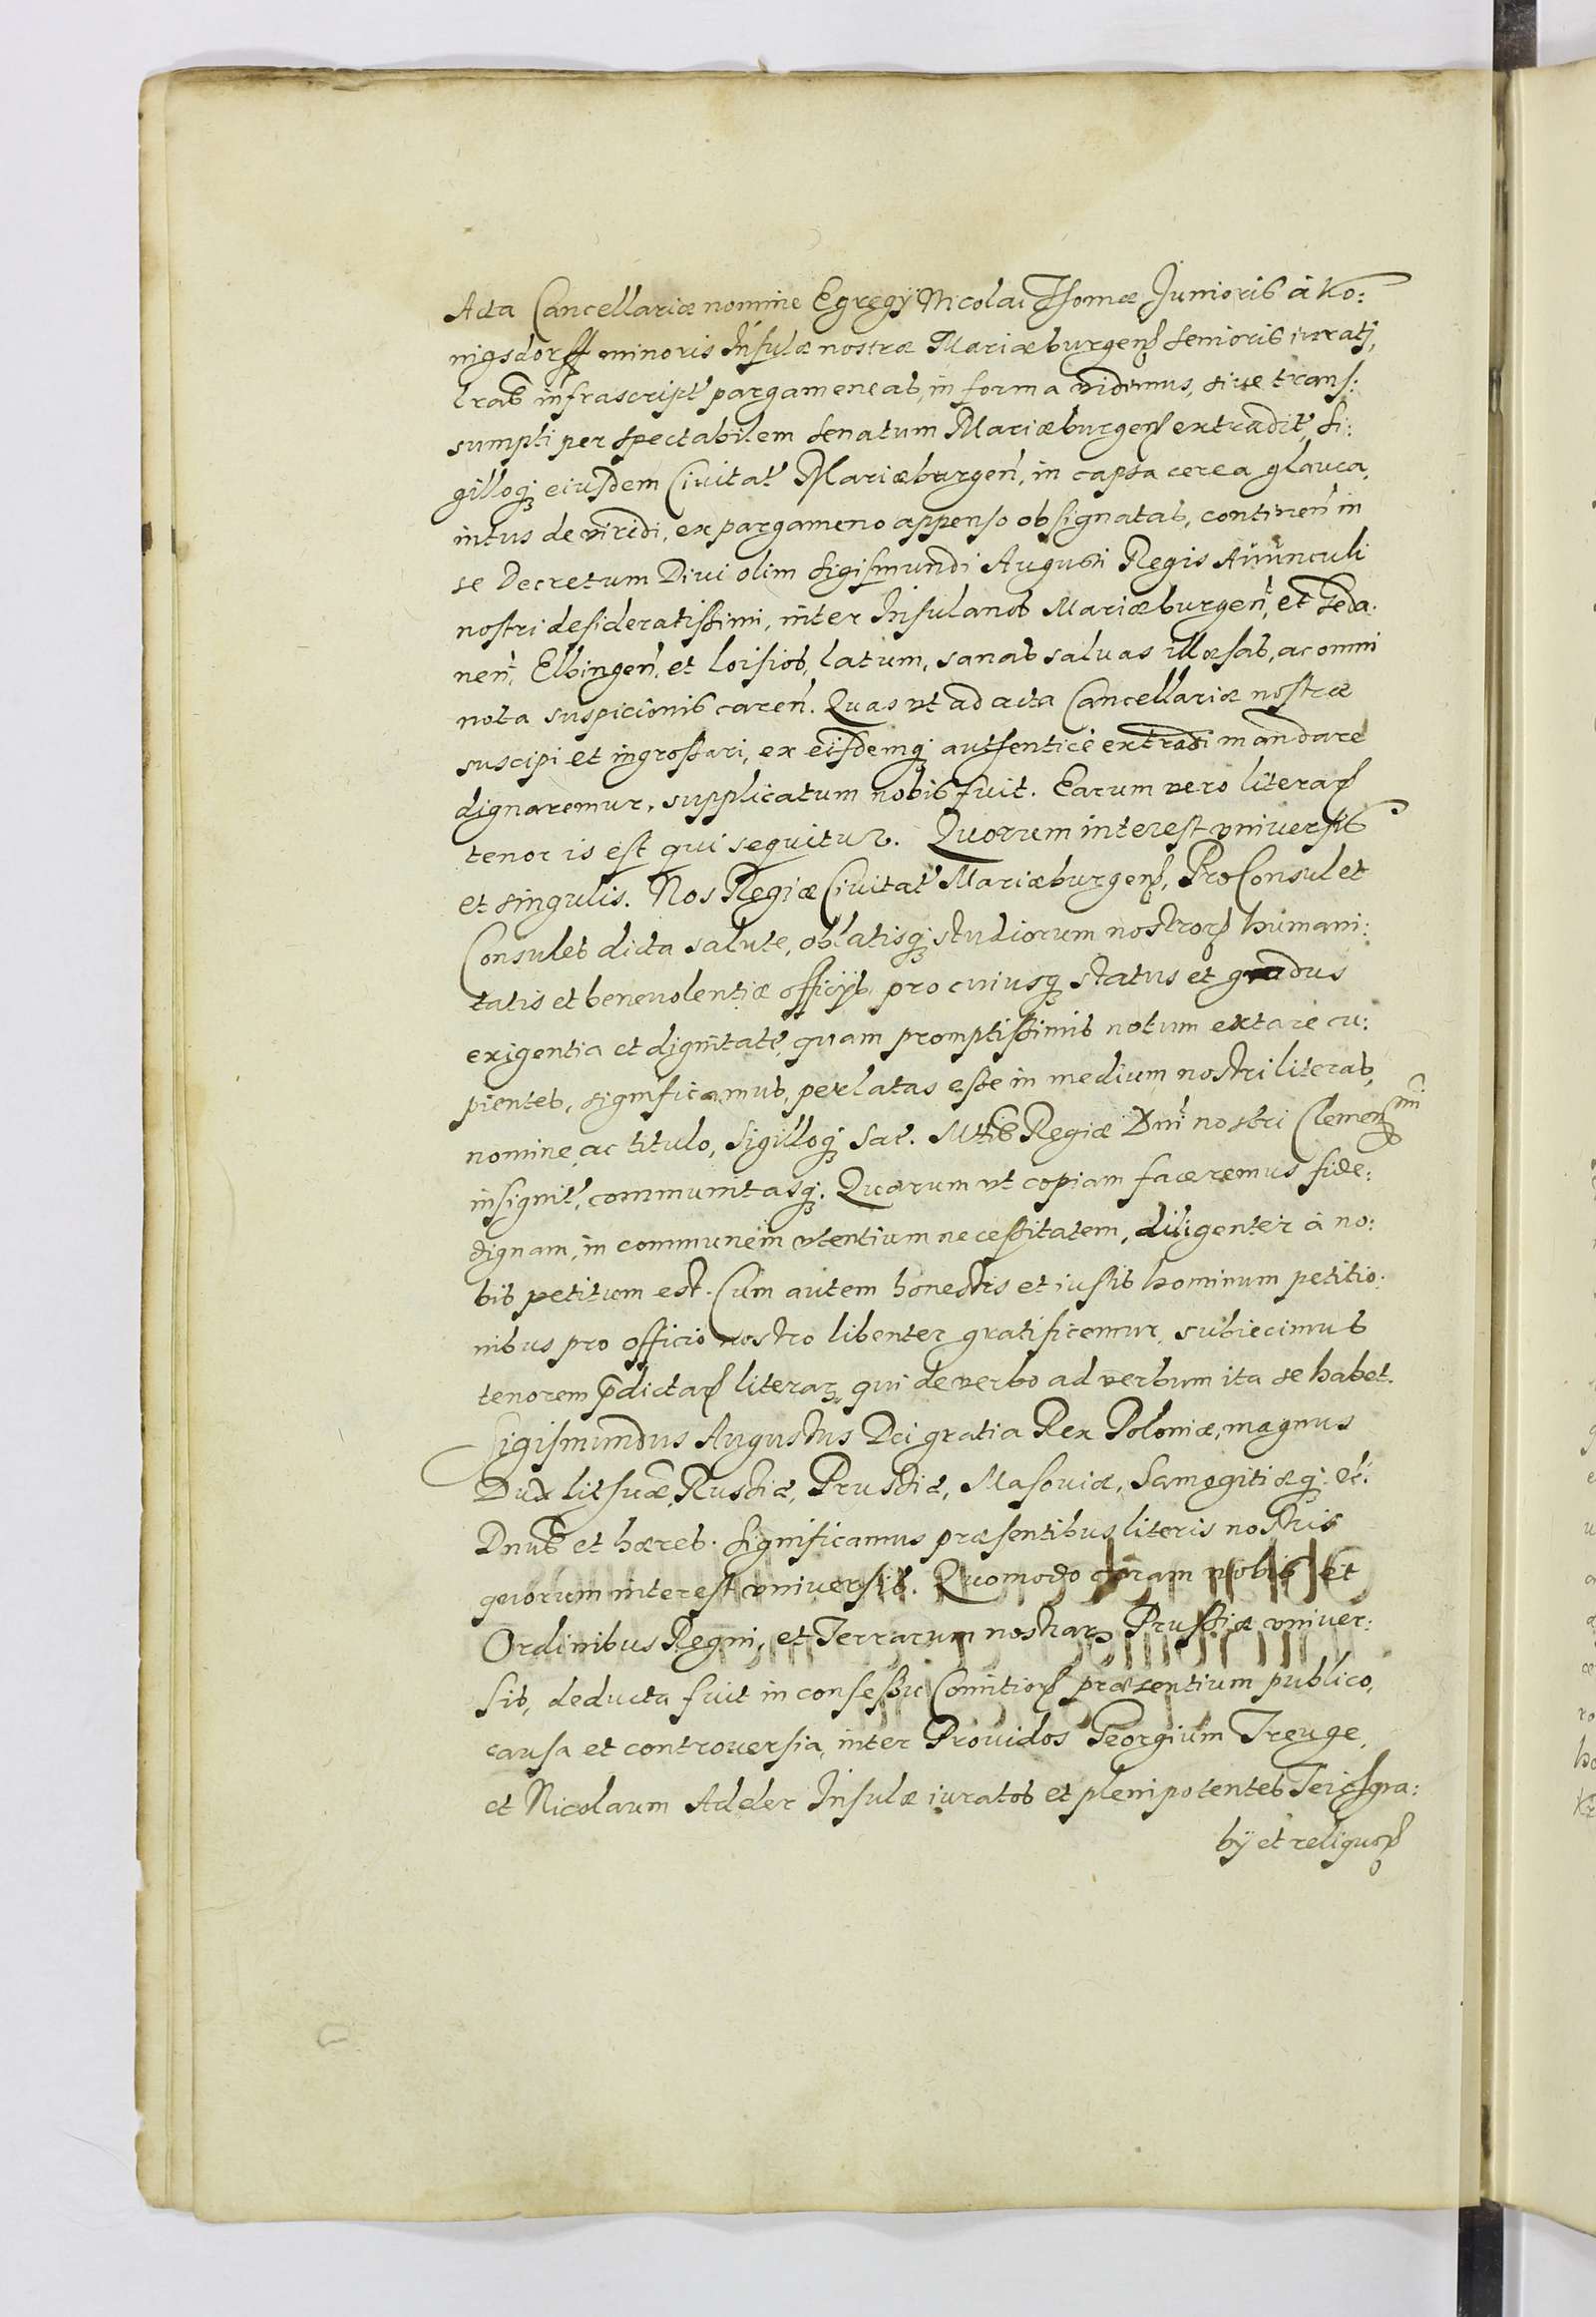 Acta Cancellariæ nomine Egregÿ Nicolai Thomæ Junioris à Ko:
nigsdorff minoris Insulæ nostræ Mariæburgens̄ senioris iurati,
lrãs infrascript̃ pargameneas, in forma vidimus, siue trans:
sumpti per spectabilem senatum Mariæburgens̄ extradit̃, si:
gilloq₃ eiusdem Ciuitat̃ Mariæburgeñ, in capsa cerea glauca,
intus de viridi, ex pargameno appenso obsignatas, contineñ in
se Decretum Diui olim Sigismundi Augusti Regis Auunculi
nostri desideratissimi, inter Insulanos Mariæburgeñ, et Geda:
neñ, Elbingeñ, et loisios, latum, sanas saluas illæsas, ac omni
nota suspicionis careñ. Quas vt ad acta Cancellariæ nostræ
suscipi et ingrossari, ex eisdemq₃ authenticè extradi mandare
dignaremur, supplicatum nobis fuit. Earum vero literaꝝ
tenor is est qui sequitur. Quorum interest vniversis
et singulis. Nos Regiæ Ciuitat̃ Mariæburgens̄, ProConsul et
Consules dicta salute, oblatisq₃ studiorum nostroꝝ humani:
tatis et beneuolentiæ officÿs, pro cuiusq₃ status et gradus
exigentia et dignitate, quam promptissimis notum extare cu:
pientes, significamus, perlatas esse in medium nostri literas,
nomine, ac titulo, sigilloq₃ Sac. Mttis Regiæ Dni̅ nostri Clemens̄mi
insignit̃, communitasq₃. Quarum vt copiam faceremus fide:
dignam, in communem vtentium necessitatem, diligenter à no:
bis petitum est. Cum autem honestis et iustis hominum petitio:
nibus pro officio nostro libenter gratificemur, subiecimus
tenorem p̄dictaꝝ literaꝝ, qui de verbo ad verbum ita se habet.
Sigismundus Augustus Dei gratia Rex Poloniæ, magnus
Dux Lithuæ, Russiæ, Prussiæ, Masouiæ, Samogitiæq₃ etc̃.
Dnus̄ et hæres. Significamus præsentibus literis nostris
quorum interest vniversis. Quomodo coram nobis et
Ordinibus Regni, et Terrarum nostraꝝ Prussiæ vniver:
sis, deducta fuit in consessu Comitioꝝ præsentium publico,
causa et controversia, inter Prouidos Georgium Treuge,
et Nicolaum Adeler Insulæ iuratos et plenipotentes Teichgra:
bÿ et reliquoꝝ